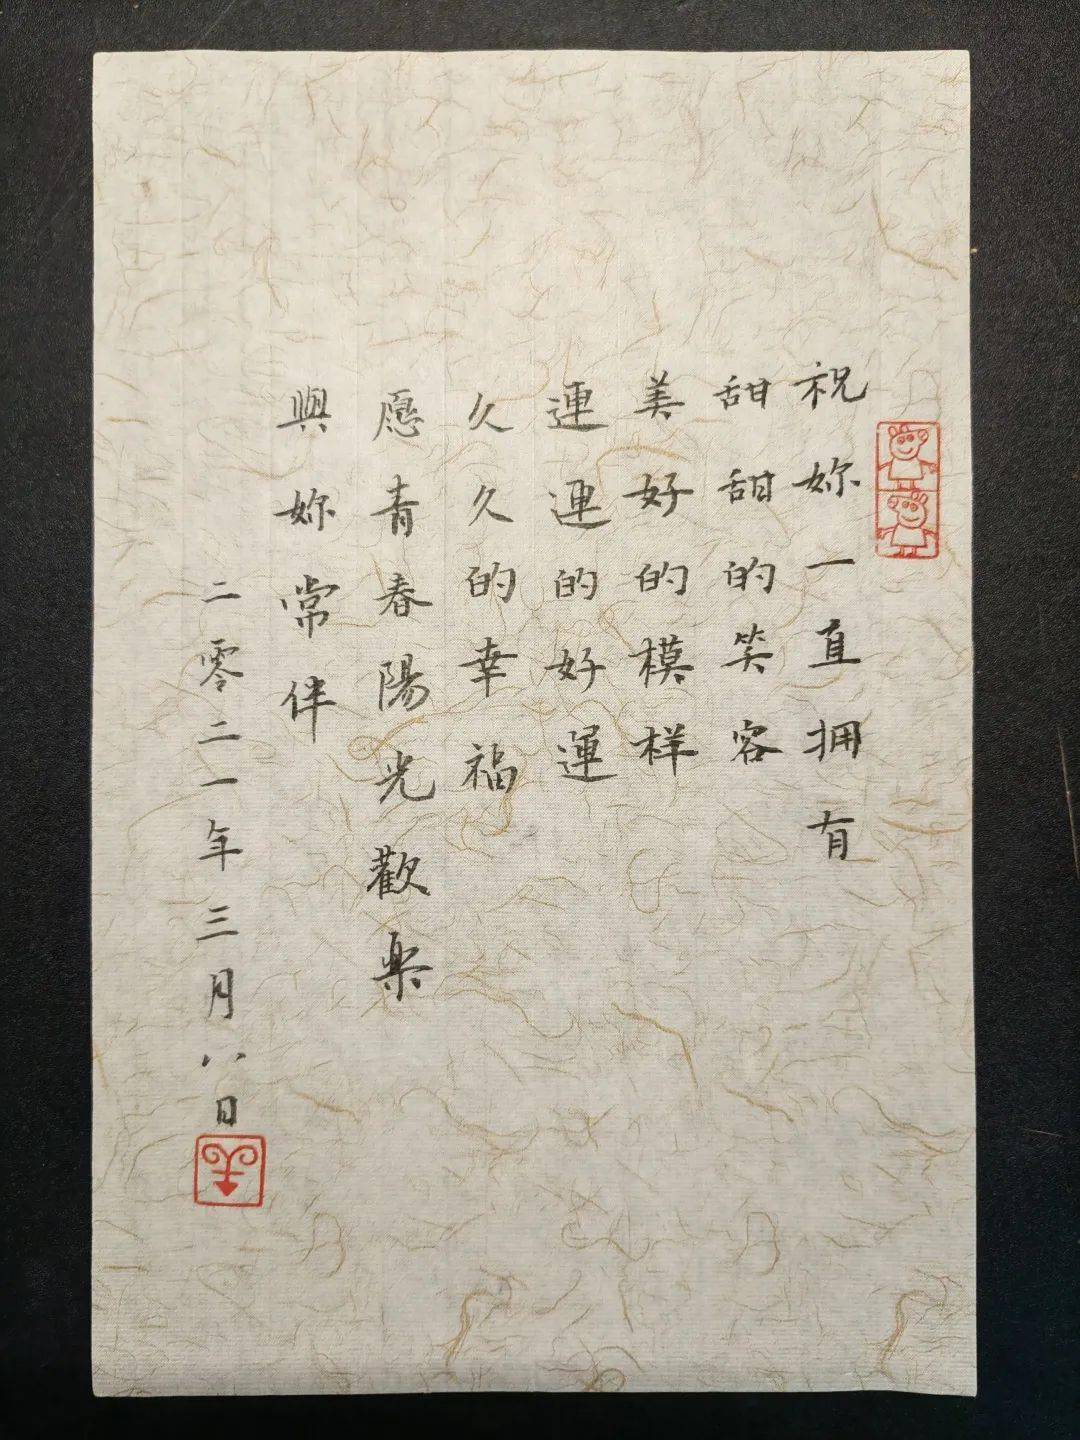 祝妳一直拥有
甜甜的笑容
美好的模样
連連的好運
久久的幸福
愿青春陽光歡樂
與妳常伴
二零二一年三月八日